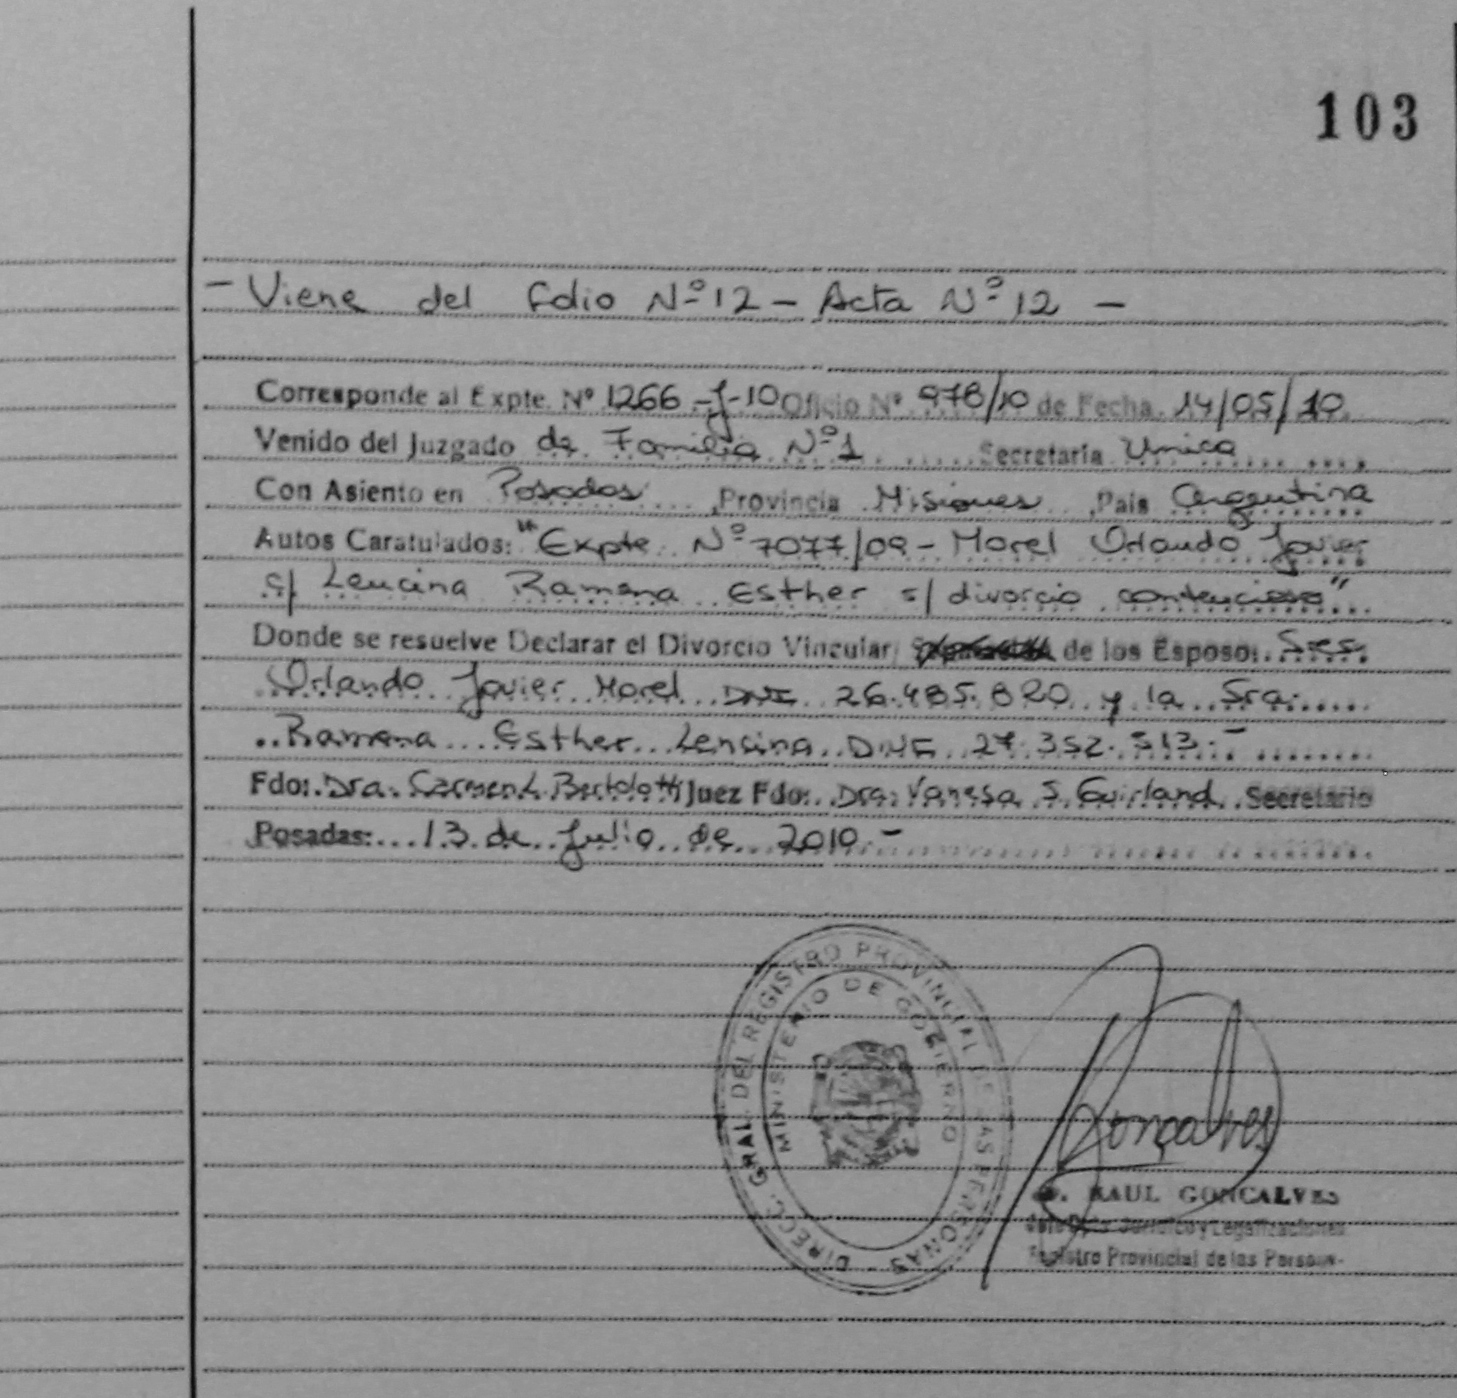 103
- Viene del folio Nº 12 - Acta Nº 12 -
Corresponde al Expte. Nº 1266-J-10 Oficio Nº 978/10 de Fecha 14/05/10.
Venido del Juzgado de Familia Nº 1 Secretaria Unica
Con Asiento en Posadas, Provincia Misiones, País Argentina
Autos Caratulados: "Expte. Nº 7077/09 - Morel Orlando Javier
c/ Lencina Ramona Esther s/ divorcio contencioso"
Donde se resuelve Declarar el Divorcio Vincular, de los Esposo: Sres.
Orlando Javier Morel DNI 26.485.820 y la Sra.
Ramona Esther Lencina DNI 27.352.513.-
Fdo: Dra. Carmen L. Bertolotti Juez Fdo: Dra. Vanesa S. Guirland Secretario
Posadas: 13 de Julio de 2010.-
DIRECC. GRAL. DEL REGISTRO PROVINCIAL DE LAS PERSONAS -
MINISTERIO DE GOBIERNO
Gonçalves
RAUL GONCALVES
Jefe Dpto. Jurídico y Legalizaciones
Registro Provincial de las Person-